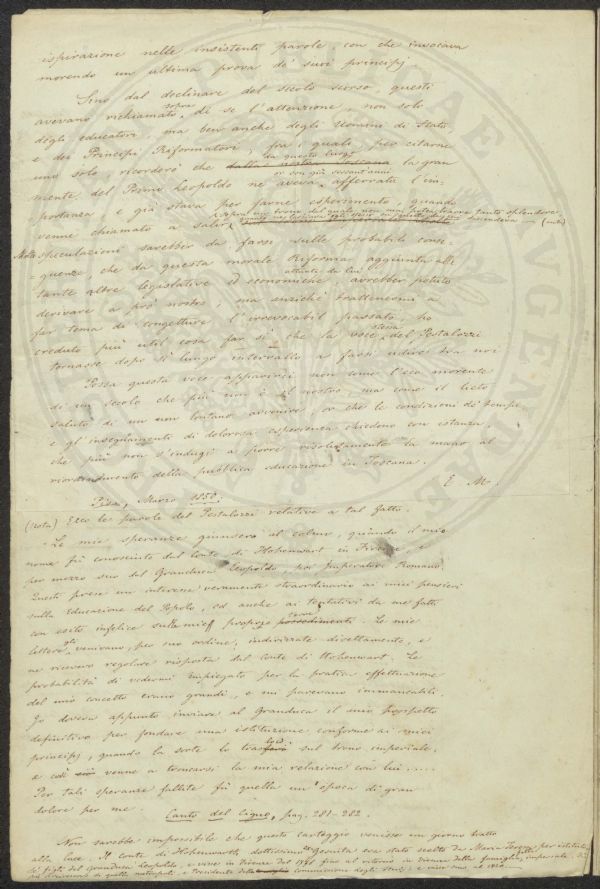 ispirazione nelle insistenti parole, con che invocava
morendo un ultima prova de' suoi principj
Sino dal declinare del secolo scorso questi
avevano richiamato sopra di se l'attenzione, non solo
degli educatori, ma ben anche degli Uomini di Stato,
e dei Principi Riformatori; fra i quali, per citarne
uno solo, ricorderò che da questo luogo dalla nostra Toscana la gran
or son già sessant'anni
mente del Primo Leopoldo ne aveva afferrata l'im-
portanza, e già stava per farne esperimento, quando
venne chiamato a salire sopra un trono dal quale non mai tanto splendore
(nota)
Molte speculazioni sarebber da farsi sulle probabili conse-
guenze, che da questa morale Riforma aggiunta alle
tante altre legislative ed economiche, attuate da lui avrebber potuto
derivare a prò nostro; ma anziché trattenermi a
far tema di congetture l'irrevocabil passato, ho
creduto più util cosa far sì che la voce stessa del Pestalozzi
tornasse dopo sì lungo intervallo a farsi udire tra noi
Possa questa voce apparirci non come l'eco morente
di un secolo che più non è il nostro, ma come il lieto
saluto di un non lontano avvenire, or che le condizioni de' tempi
e gl'insegnamenti di dolorosa esperienza chiedono con istanza,
che più non s'indugi a porre risolutamente la mano al
riordinamento della pubblica educazione in Toscana.
E. M.
Pisa, Marzo 1850.
(nota) Ecco le parole del Pestalozzi relative a tal fatto.
"Le mie speranze giunsero al colmo, quando il mio
nome fù conosciuto dal Conte di Hohenwart in Firenze, e
per mezzo suo dal Granduca Leopoldo, poi Imperatore Romano.
Questi prese un interesse veramente straordinario ai miei pensieri
sulla Educazione del Popolo, ed anche ai tentativi da me fatti
con esito infelice sulle mie proprie terre possedimenti. Le mie
lettere gli venivano, per suo ordine, indirizzate direttamente, e
ne ricevevo regolare risposta dal Conte di Hohenwart. Le
probabilità di vedermi impiegato per la pratica effettuazione
del mio concetto erano grandi, e mi parevano immancabili.
Io doveva appunto inviare al Granduca il mio prospetto
definitivo per fondare una istituzione conforme ai miei
principj, quando la sorte lo sul trono imperiale,
e così venne a troncarsi la mia relazione con lui.....
Per tali speranze fallite fù quella un'epoca di gran
dolore per me. Canto del Cigno, pag. 281-282.
Non sarebbe impossibile che questo carteggio venisse un giorno tratto
alla luce. Il Conte di Hohenwarth, dottissimo Gesuita era stato scelto da Maria Teresa per istitutore
dei figli del Granduca Leopoldo, e visse in Firenze dal fino al ritorno in Vienna della famiglia imperiale,
di quella metropoli, e Presidente della commissione degli studj, e visse sino al 1820.